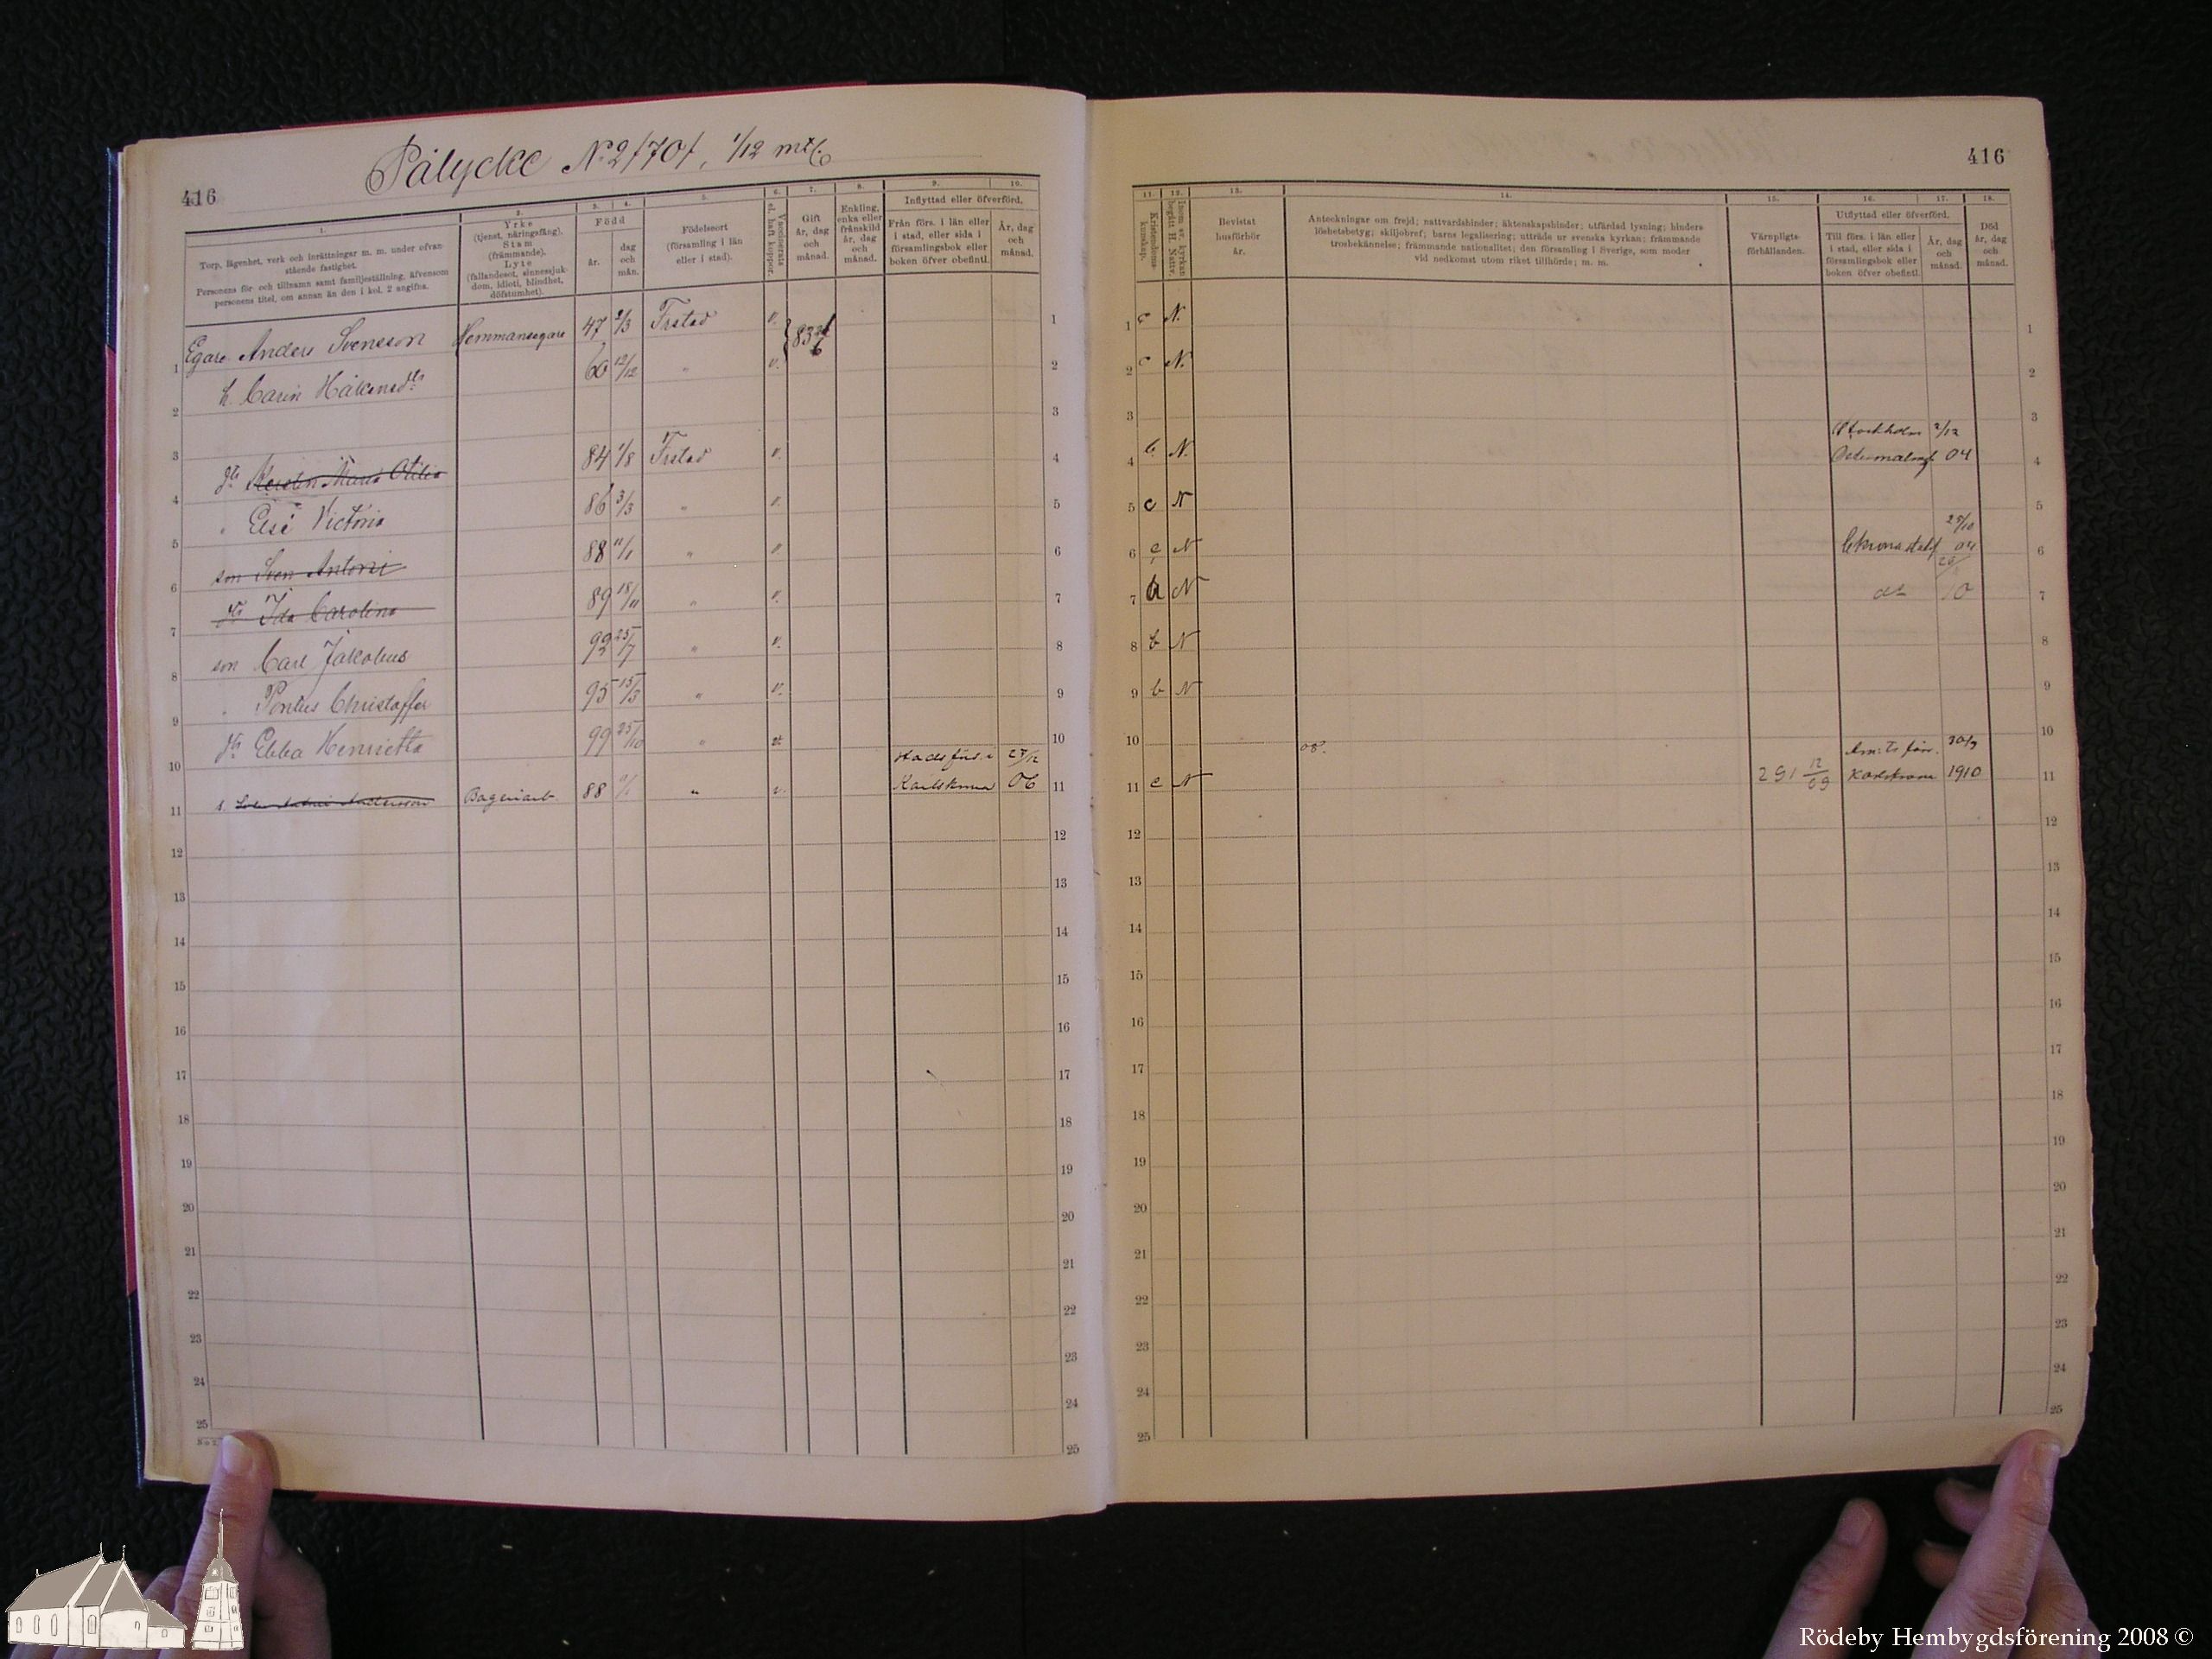 Pålycke No 2/70/, 1/12 mtl
416
416
1. 2. 3. 4. 5. 6. 7. 8. 9. 10.
Torp, lägenhet, verk och inrättningar m. m. under ofvan-
stående fastighet.
Personens för- och tillnamn samt familjeställning, äfvensom
personens titel, om annan än den i kol. 2 angifna.
Yrke
(tjenst, näringsfång).
Stam
(främmande).
Lyte
(fallandesot, sinnessjuk-
dom, idioti, blindhet,
döfstumhet).
Född
år.
dag
och
mån.
Födelseort
(församling i län
eller i stad).
Vaccinerats
el. haft koppor.
Gift
år, dag
och
månad.
Enkling,
enka eller
frånskild
år, dag
och
månad.
Inflyttad eller öfverförd.
Från förs. i län eller
i stad, eller sida i
församlingsbok eller
boken öfver obefintl.
År, dag
och
månad.
11. 12. 13. 14. 15. 16. 17. 18.
Kristendoms-
kunskap.
Inom sv. kyrkan
begått H. Nattv.
Bevistat
husförhör
år.
Anteckningar om frejd; nattvardshinder; äktenskapshinder; utfärdad lysning; hinders-
löshetsbetyg; skiljobref; barns legalisering; utträde ur svenska kyrkan; främmande
trosbekännelse; främmande nationalitet; den församling i Sverige, som moder
vid nedkomst utom riket tillhörde; m. m.
Värnpligts-
förhållanden.
Utflyttad eller öfverförd.
Till förs. i län eller
i stad, eller sida i
församlingsbok eller
boken öfver obefintl.
År, dag
och
månad.
Död
år, dag
och
månad.
Egare Anders Svensson Hemmansegare 47 2/3 Fristad v. 83 c N.
1
h. Carin Håkansdtr 60 12/12 " v. c N.
2
3
dtr Kersten Maria Otilia 84 1/8 Fristad v. b. N. Stockholm 2/12
Östermalm 04
4
" Else Victoria 86 3/3 " v. c N
5
son Sven Antoni 88 11/1 " v. c N Ckrona stadsf 25/10 04
6
dtr Ida Carolina 89 18/11 " v. a N do
7
son Carl Jakobus 92 25/7 " v. b N
8
" Pontus Christoffer 95 15/3 " v. b N
9
dtr Ebba Henrietta 99 25/10 " v.
10
s. Sven Antoni Andersson Bageriarb. 88 " v. stadsförs. i
Karlskrona 06 c N 08. 291 12/09 Am:ts förs. 30/9
Karlskrona 1910
11
12
13
14
15
16
17
18
19
20
21
22
23
24
25
Rödeby Hembygdsförening 2008 ©